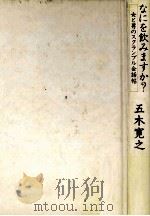 なにを飲みますか?
女と男のスクランブル会話帖
五木寛之